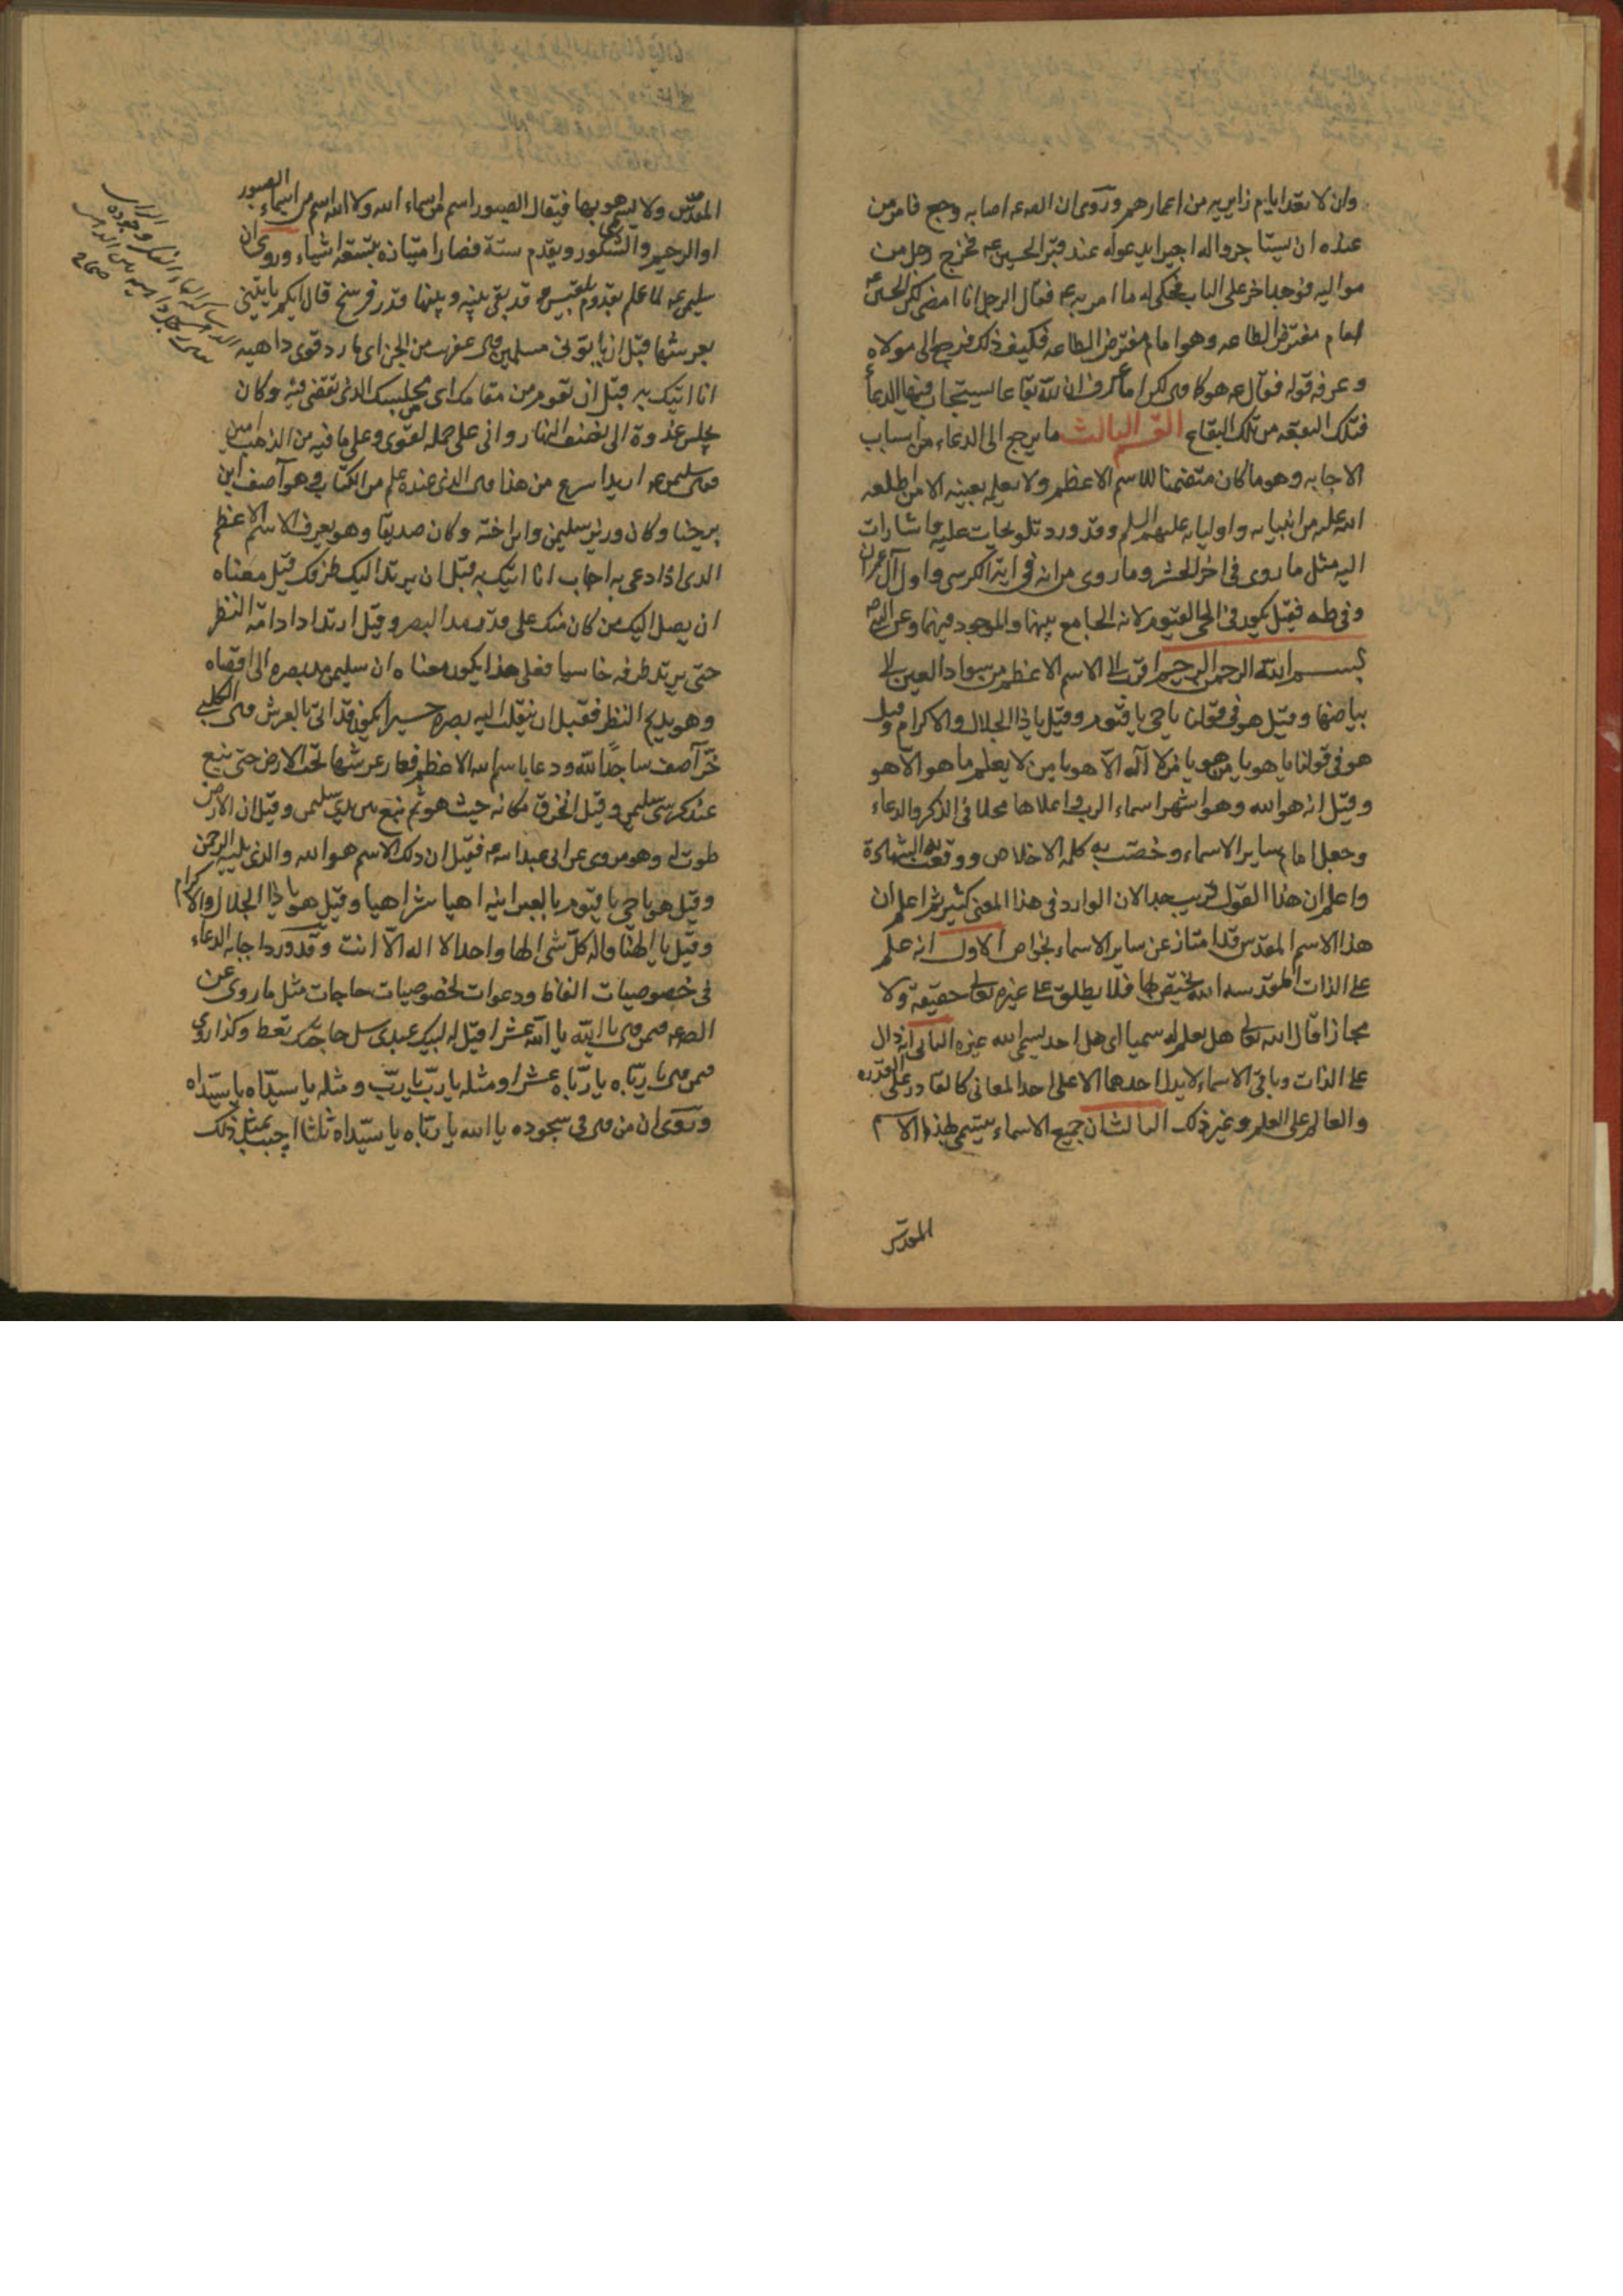 وان لا تعد ايام زايريه من اعمارهم وروى ان الص عه اصابه وجع فامر من
عنده ان يستاجروا له اجيرا يدعو له عند قبر الحسين عه فخرج رجل من
مواليه فوجد اخر على الباب فحكى له ما امر به عه فقال الرجل انا امضى لكن الحسين عه
امام مفترض الطاعه وهو امام مفترض الطاعه فكيف ذلك فرجع الى مولاه
وعرفه قوله فقال عه هو كما قال لكن اما عرف ان لله بقاعا يستجاب فيها الدعاء
فتلك البقعه من تلك البقاع القسم الثالث ما يرجع الى الدعاء من اسباب
الاجابه وهو ما كان متضمنا للاسم الاعظم ولا يعلمه بعينه الا من اطلعه
الله عليه من انبيائه واوليائه عليهم السلم وقد ورد تلويحات عليه واشارات
اليه مثل ما روى فى اخر الحشر وما روى من انه فى اية الكرسى واول آل عمران
وفى طه فقيل يكون فى الحى القيوم لانه الجامع بينهما والموجود فيهما وعن النبى ص
بسم الله الرحمن الرحيم اقرب الى الاسم الاعظم من سواد العين الى
بياضها وقيل هو فى قولنا يا حى يا قيوم وقيل يا ذا الجلال والاكرام وقيل
هو فى قولنا يا هو يا من هو يا من لا اله الا هو يا من لا يعلم ما هو الا هو
وقيل انه هو الله وهو اشهر اسماء الرب واعلاها محلا فى الذكر والدعاء
وجعل امام ساير الاسماء وخصت به كلمه الاخلاص ووقعت به الشهادة
واعلم ان هذا القول قريب جدا لان الوارد فى هذا المعنى كثير ثم اعلم ان
هذا الاسم المقدس قد امتاز عن ساير الاسماء بخواص الاول انه علم
على الذات المقدسه مختص بها فلا يطلق على غيره تعالى حقيقة ولا
مجازا قال الله تعالى هل تعلم له سميا اى هل احد يسمى الله غيره الثانى انه دال
على الذات وباقى الاسماء لا يدل احدها الا على احد المعانى كالقادر على القدره
والعالم على العلم وغير ذلك الثالث ان جميع الاسماء يتسمى بهذا الاسم
المقدس
المقدس ولا يتسمى هو بها فيقال الصبور اسم من اسماء الله ولا الله اسم من اسماء الصبور
او الرحيم والشكور ويقدم ستة فصار امتيازه بتسعة اشياء وروى ان
سليمن عه لما علم بقدوم بلقيس وقد بقى بينه وبينها قدر فرسخ قال ايكم ياتينى
بعرشها قبل ان ياتونى مسلمين قال عفريت من الجن اى مارد قوى داهيه
انا اتيك به قبل ان تقوم من مقامك اى مجلسك الذى تقضى فيه وكان
يجلس غدوة الى نصف النهار وانى على حمله لقوى وعلى ما فيه من الذهب امين
فقال سليمن عه اريد اسرع من هذا قال الذى عنده علم من الكتاب وهو آصف ابن
برخيا وكان وزير سليمن وابن اخته وكان صديقا وهو يعرف الاسم الاعظم
الذى اذا دعى به اجاب انا اتيك به قبل ان يرتد اليك طرفك قيل معناه
ان يصل اليك من كان منك على قدر مد البصر وقيل ارتداد ادامة النظر
حتى يرتد طرفه خاسيا فعلى هذا يكون معناه ان سليمن مد بصره الى اقصاه
وهو يديم النظر فقبل ان ينقلب اليه بصره حسيرا يكون قد اتى بالعرش قال الكلبى
خر آصف ساجدا لله ودعا باسم الله الاعظم فغار عرشها تحت الارض حتى نبع
عند كرسى سليمن وقيل انخرق مكانه حيث هو ثم نبع بين يدى سليمن وقيل ان الارض
طويت له وهو مروى عن ابى عبد الله عه فقيل ان ذلك الاسم هو الله والذى يليه الرحمن
وقيل هو يا حى يا قيوم بالعبرانيه اهيا شراهيا وقيل هو يا ذا الجلال والاكرام
وقيل يا الهنا واله كل شى الها واحدا لا اله الا انت وقد ورد اجابه الدعاء
فى خصوصيات الفاظ ودعوات لخصوصيات حاجات مثل ما روى عن
الص عه من قال يا الله يا الله عشرا قيل له لبيك عبدى سل حاجتك تعط وكذا روى
فيمن قال يا رباه يا رباه عشرا ومثله يا رب يا رب ومثله يا سيداه يا سيداه
وروى ان من قال فى سجوده يا الله يا رباه يا سيداه ثلثا اجيب بمثل ذلك